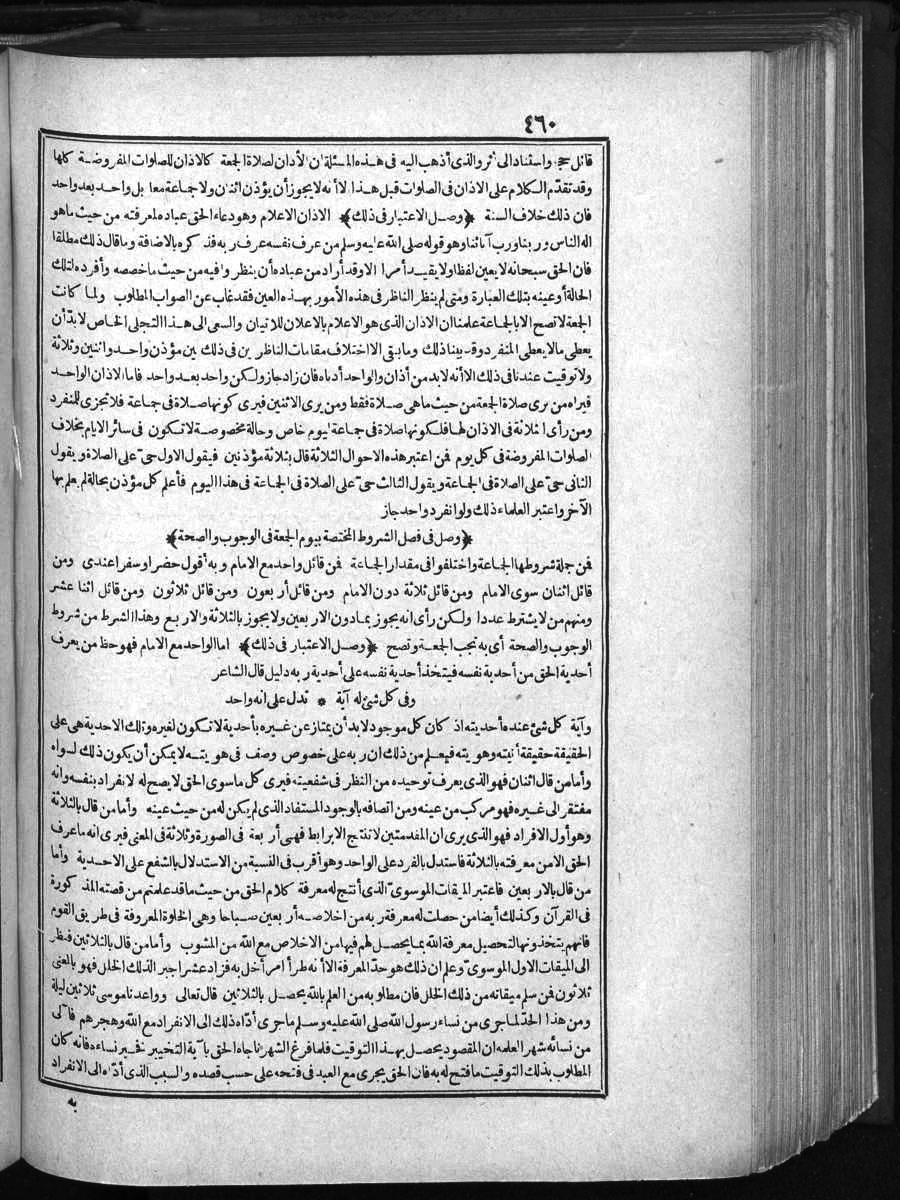 ٤٦٠
قائل حجج واستنادا الى أثر والذى أذهب اليه فى هذه المسئلة ان الأذان لصلاة الجمعة كالاذان للصلوات المفروضة كلها
وقد تقدّم الكلام على الاذان فى الصلوات قبل هذا الا أنه لا يجوز أن يؤذن اثنان ولا جماعة معا بل واحد بعد واحد
فان ذلك خلاف السنة ﴿وصل الاعتبار فى ذلك﴾ الاذان الاعلام وهو دعاء الحق عباده لمعرفته من حيث ما هو
اله الناس ورب بنا ورب آبائنا وهو قوله صلى الله عليه وسلم من عرف نفسه عرف ربه فذكره بالاضافة وما قال ذلك مطلقا
فان الحق سبحانه لا يعين لفظا ولا يقيد أمرا الا وقد أراد من عباده أن ينظروا فيه من حيث ما خصصه وأفرده لتلك
الحالة أو عينه بتلك العبارة ومتى لم ينظر الناظر فى هذه الأمور بهذه العين فقد غاب عن الصواب المطلوب ولما كانت
الجمعة لا تصح الا بالجماعة علمنا ان الاذان الذى هو الاعلام بالاعلان للاتيان والسعى الى هذا التجلى الخاص لا بدّ أن
يعطى ما لا يعطى المنفرد وقد بينا ذلك وما بقى الا اختلاف مقامات الناظرين فى ذلك بين مؤذن واحد واثنين وثلاثة
ولا توقيت عندنا فى ذلك الا أنه لا بد من أذان والواحد أدناه فان زاد جاز ولكن واحد بعد واحد فاما الاذان الواحد
فيراه من يرى صلاة الجمعة من حيث ماهى صلاة فقط ومن يرى الاثنين فيرى كونها صلاة فى جماعة فلا تجزى للمنفرد
ومن رأى الثلاثة فى الاذان لها فلكونها صلاة فى جماعة ليوم خاص وحالة مخصوصة لا تكون فى سائر الايام بخلاف
الصلوات المفروضة فى كل يوم فمن اعتبر هذه الاحوال الثلاثة قال بثلاثة مؤذنين فيقول الاول حىّ على الصلاة ويقول
الثانى حىّ على الصلاة فى الجماعة ويقول الثالث حىّ على الصلاة فى الجماعة فى هذا اليوم فأعلم كل مؤذن بحالة لم يعلم بها
الآخر واعتبر العلماء ذلك ولو انفرد واحد جاز
﴿وصل فى فصل الشروط المختصة بيوم الجمعة فى الوجوب والصحة﴾
فمن جملة شروطها الجماعة واختلفوا فى مقدار الجماعة فمن قائل واحد مع الامام وبه أقول حضرا وسفرا عندى ومن
قائل اثنان سوى الامام ومن قائل ثلاثة دون الامام ومن قائل أربعون ومن قائل ثلاثون ومن قائل اثنا عشر
ومنهم من لا يشترط عددا ولكن رأى انه يجوز بمادون الاربعين ولا يجوز بالثلاثة والاربع وهذا الشرط من شروط
الوجوب والصحة أى به تجب الجمعة وتصح ﴿وصل الاعتبار فى ذلك﴾ اما الواحد مع الامام فهو حظ من يعرف
أحدية الحق من أحدية نفسه فيتخذ أحدية نفسه على أحدية ربه دليل قال الشاعر
وفى كل شئ له آية * تدل على انه واحد
وآية كل شئ عنده أحديته اذ كان كل موجود لا بد أن يمتاز عن غيره بأحدية لا تكون لغيره وتلك الاحدية هى على
الحقيقة حقيقة أنيته وهويته فيعلم من ذلك ان ربه على خصوص وصف فى هويته لا يمكن أن يكون ذلك لسواه
وأما من قال اثنان فهو الذى يعرف توحيده من النظر فى شفعيته فيرى كل ما سوى الحق لا يصح له الانفراد بنفسه وانه
مفتقر الى غيره فهو مركب من عينه ومن اتصافه بالوجود المستفاد الذى لم يكن له من حيث عينه وأما من قال بالثلاثة
وهو أول الافراد فهو الذى يرى ان المقدمتين لا تنتج الا برابط فهى أربعة فى الصورة وثلاثة فى المعنى فيرى انه ما عرف
الحق الا من معرفته بالثلاثة فاستدل بالفرد على الواحد وهو أقرب فى النسبة من الاستدلال بالشفع على الاحدية وأما
من قال بالاربعين فاعتبر الميقات الموسوىّ الذى أنتج له معرفة كلام الحق من حيث ما قد علمتم من قصته المذكورة
فى القرآن وكذلك أيضا من حصلت له معرفة ربه من اخلاصه أربعين صباحا وهى الخلوة المعروفة فى طريق القوم
فانهم يتخذونها لتحصيل معرفة الله بما يحصل لهم فيها من الاخلاص مع الله من المشوب وأما من قال بالثلاثين فنظر
الى الميقات الاول الموسوىّ وعلم ان ذلك هو حدّ المعرفة الا أنه طرأ أمر أخل به فزاد عشرا جبرا لذلك الخلل فهو بالمعنى
ثلاثون فمن سلم ميقاته من ذلك الخلل فان مطلوبه من العلم بالله يحصل بالثلاثين قال تعالى وواعدنا موسى ثلاثين ليلة
ومن هذا الحدّ لما جرى من نساء رسول الله صلى الله عليه وسلم ما جرى أدّاه ذلك الى الانفراد مع الله وهجرهم فآلى
من نسائه شهرا لعلمه ان المقصود يحصل بهذا التوقيت فلما فرغ الشهر ناجاه الحق بآية التخيير فخير نساءه فانه كان
المطلوب بذلك التوقيت ما فتح له به فان الحق يجرى مع العبد فى فتحه على حسب قصده والسبب الذى أدّاه الى الانفراد
به